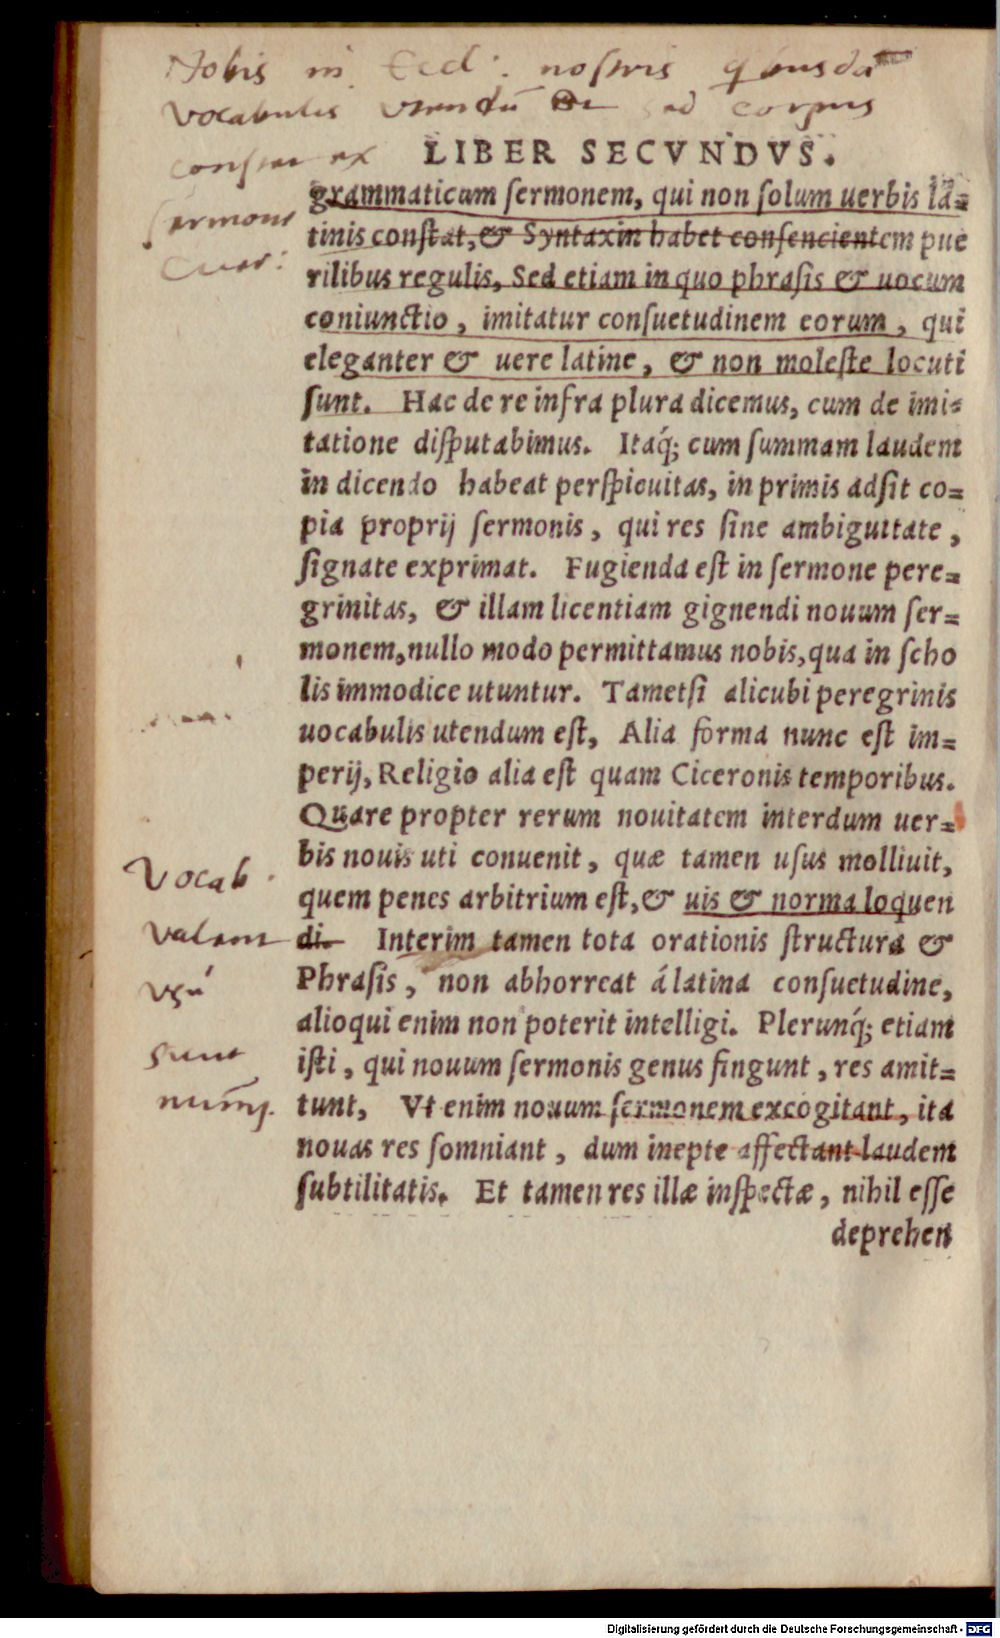 Nobis in Eccl: nostris qbusdā
vocabulis utendū sed corpus
constet ex
LIBER SECVNDVS.
sermone
grammaticum ſermonem, qui non ſolum uerbis la=
tinis conſtat, & Syntaxin habet conſencientem pue
rilibus regulis, Sed etiam in quo phraſis & uocum
coniunctio, imitatur conſuetudinem eorum, qui
eleganter & uere latine, & non moleſte locuti
ſunt. Hac de re infra plura dicemus, cum de imi=
tatione diſputabimus. Itaq́; cum ſummam laudem
in dicendo habeat perſpicuitas, in primis adſit co=
pia proprij ſermonis, qui res ſine ambiguitate,
ſignate exprimat. Fugienda eſt in ſermone pere=
grinitas, & illam licentiam gignendi nouum ſer=
monem, nullo modo permittamus nobis, qua in ſcho
lis immodice utuntur. Tametſi alicubi peregrinis
uocabulis utendum eſt, Alia forma nunc eſt im=
perij, Religio alia eſt quam Ciceronis temporibus.
Quare propter rerum nouitatem interdum uer=
bis nouis uti conuenit, quæ tamen uſus molliuit,
Vocab.
quem penes arbitrium eſt, & uis & norma loquen
valent
di. Interim tamen tota orationis ſtructura &
usū
Phraſis, non abhorreat á latina conſuetudine,
alioqui enim non poterit intelligi. Plerunq́; etiam
sicut
iſti, qui nouum ſermonis genus fingunt, res amit=
tunt, Vt enim nouum ſermonem excogitant, ita
nouas res ſomniant, dum inepte affectant laudem
ſubtilitatis. Et tamen res illæ inſpectæ, nihil eſſe
deprehen
Digitalisierung gefördert durch die Deutsche Forschungsgemeinschaft - DFG